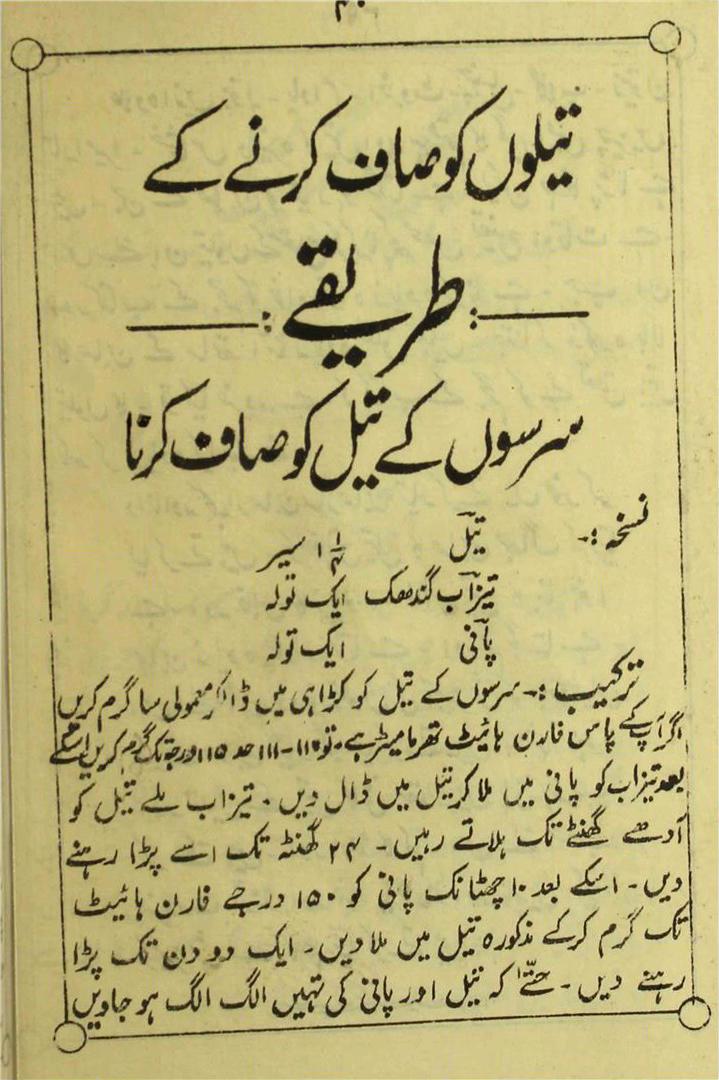 تیلوں کو صاف کرنے کے
طریقے
سرسوں کے تیل کو صاف کرنا
نسخہ :۔ تیل ۱ ۱/۴ سیر
تیزاب گندھک ایک تولہ
پانی ایک تولہ
ترکیب :۔ سرسوں کے تیل کو کڑاہی میں ڈالکر معمولی سا گرم کریں
اگر آپ کے پاس فارن ہائیٹ تھرمامیٹر ہے۔ تو ۱۱۰-۱۱۱ حد ۱۱۵ درجہ تک گرم کریں اسکے
بعد تیزاب کو پانی میں ملا کر تیل میں ڈال دیں۔ تیزاب ملے تیل کو
آدھے گھنٹے تک ہلاتے رہیں۔ ۲۴ گھنٹہ تک اسے پڑا رہنے
دیں۔ اسکے بعد ۱۰ چھٹانک پانی کو ۱۵۰ درجے فارن ہائیٹ
تک گرم کرکے مذکورہ تیل میں ملا دیں۔ ایک دو دن تک پڑا
رہنے دیں۔ حتےٰ کہ تیل اور پانی کی تہیں الگ الگ ہو جاویں